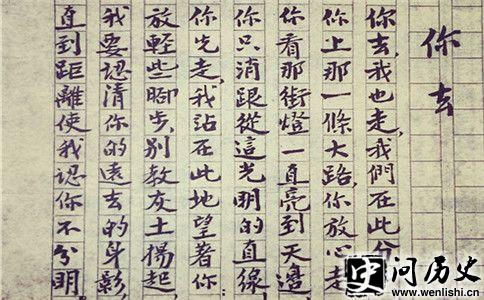 你去
你去,我也走,我們在此分
你上那一條大路,你放心走
你看那街燈一直亮到天邊
你只消跟從這光明的直線
你先走,我站在此地望著你:
放輕些腳步,別教灰土揚起,
我要認清你的遠去的身影,
直到距離使我認你不分明。
史问历史
www.wenlishi.cn